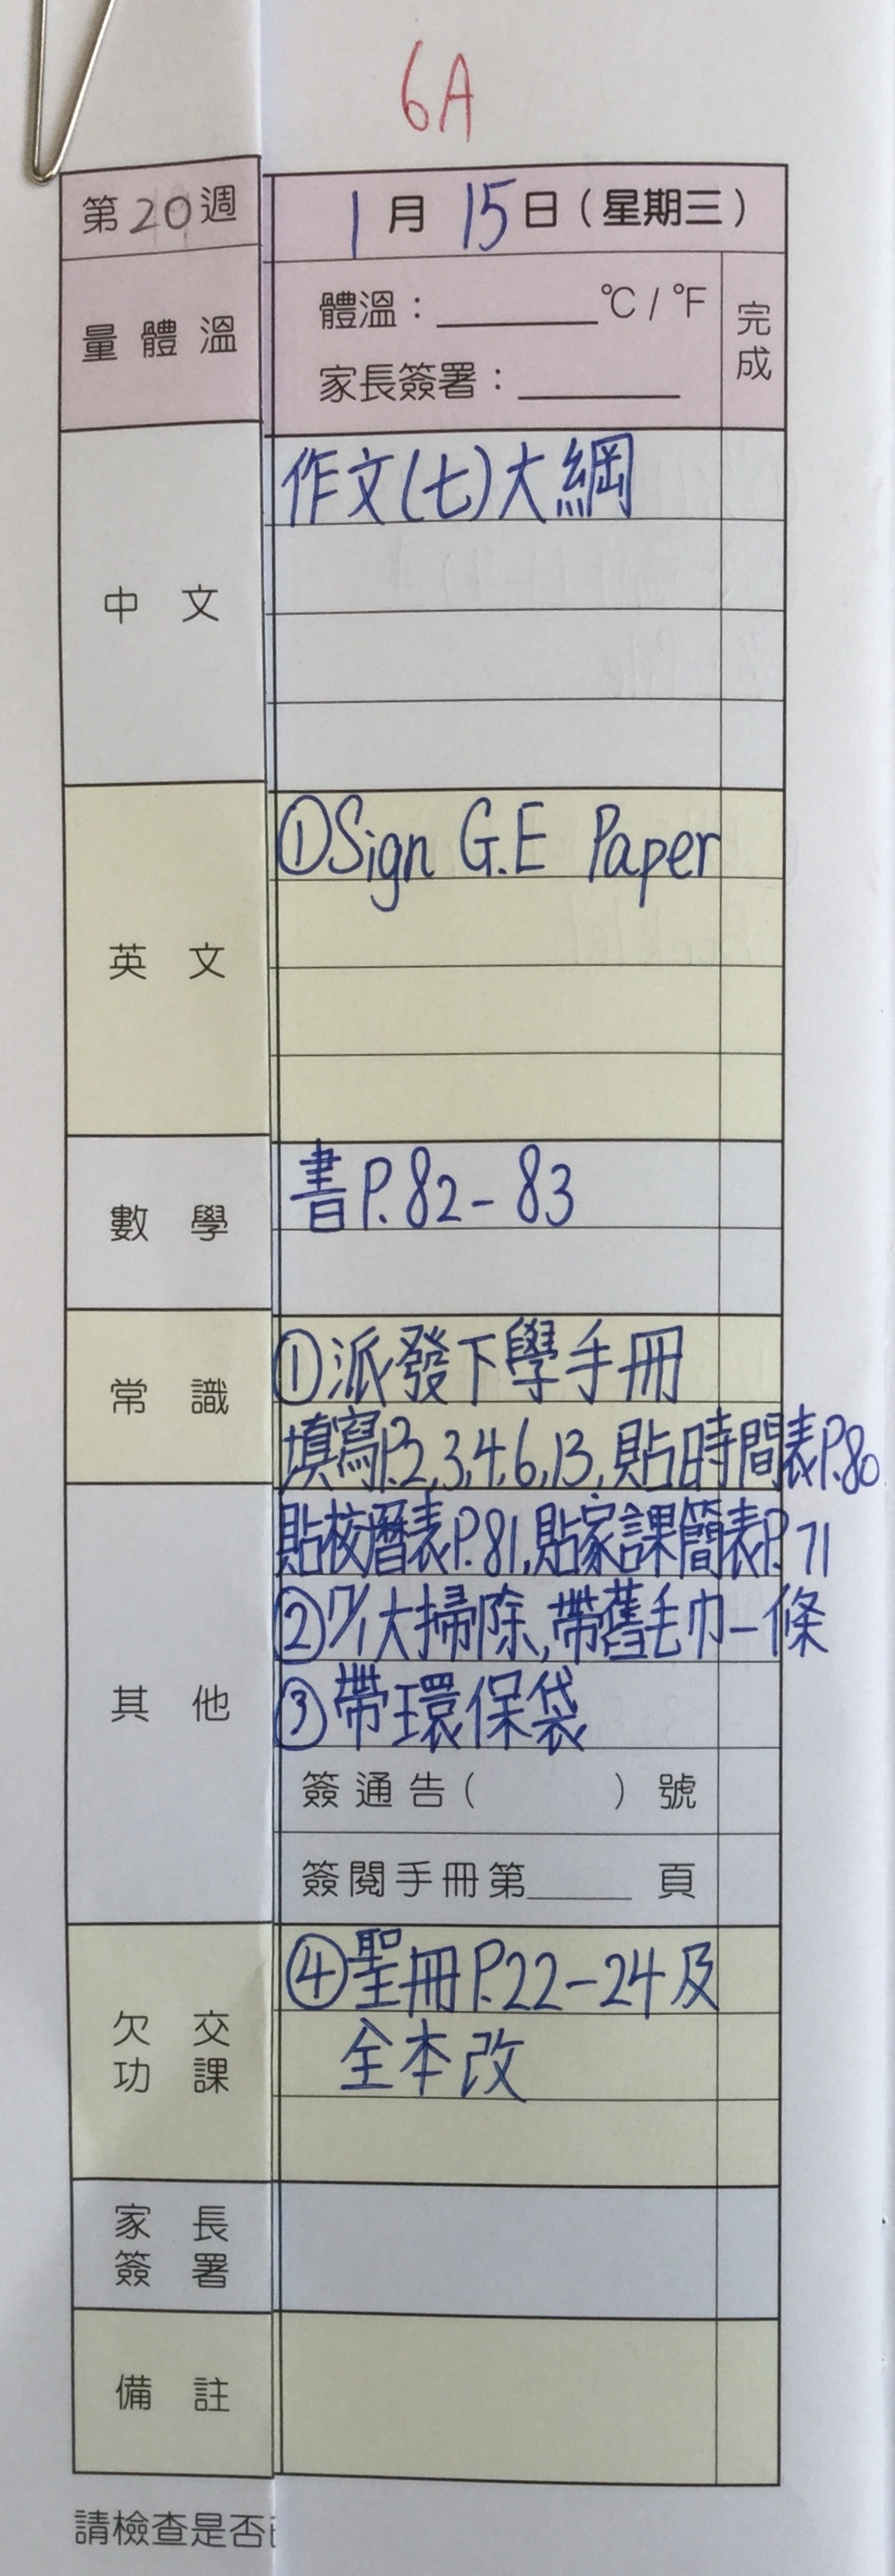 6A
第20週 1月15日（星期三）
量體溫 體溫：______°C / °F 完成
家長簽署：______
中文 作文(七)大綱
英文 ①Sign G.E Paper
數學 書P.82-83
常識 ①派發下學手冊
填寫P.2,3,4,6,13,貼時間表P.80
貼校曆表P.81,貼家課簡表P.71
其他 ②17/1大掃除,帶舊毛巾一條
③帶環保袋
簽通告（ ）號
簽閱手冊第______頁
欠交功課 ④聖冊P.22-24及
全本改
家長簽署
備註
請檢查是否